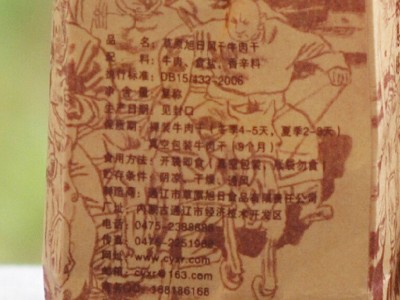 品 名: 草原旭日风干牛肉干
配 料: 牛肉、食盐、香辛料
执行标准: DB15/432-2006
净 含 量: 见称
生产日期: 见封口
保质期: 裸装牛肉干(冬季4-5天,夏季2-3天)
真空包装牛肉干(9个月)
食用方法: 开袋即食(真空包装,胀袋勿食)
贮存条件: 阴凉、干燥、通风
制造商: 通辽市草原旭日食品有限责任公司
厂址: 内蒙古通辽市经济技术开发区
电话: 0475-2388888
传真: 0475-2251968
网址: www.cyxr.com
邮箱: cyxr@163.com
商务QQ: 168186168